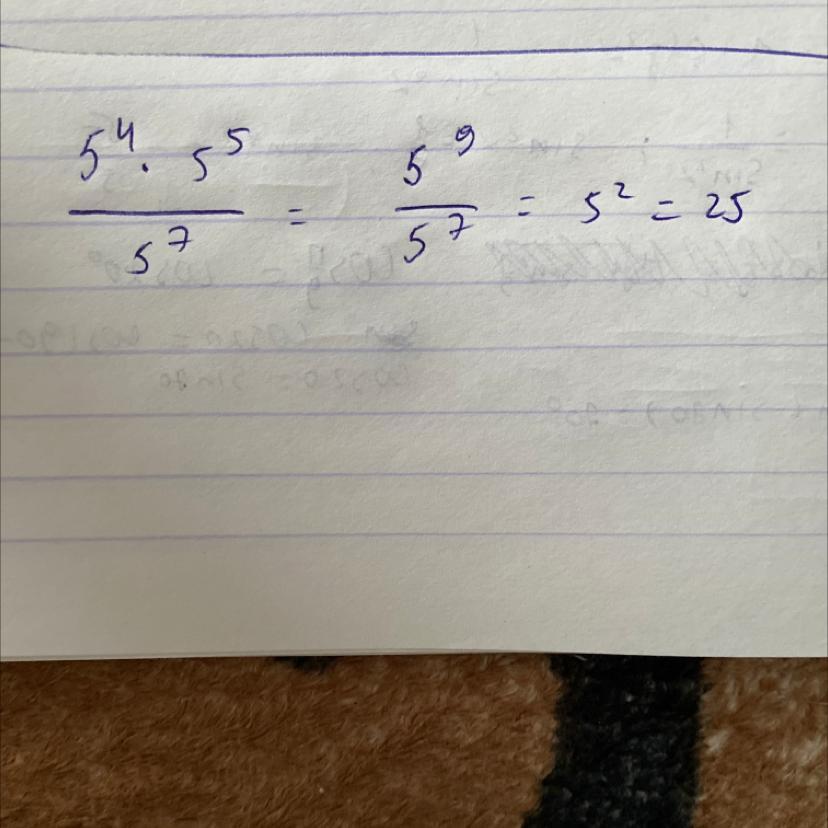 5⁴ · 5⁵ / 5⁷ = 5⁹ / 5⁷ = 5² = 25